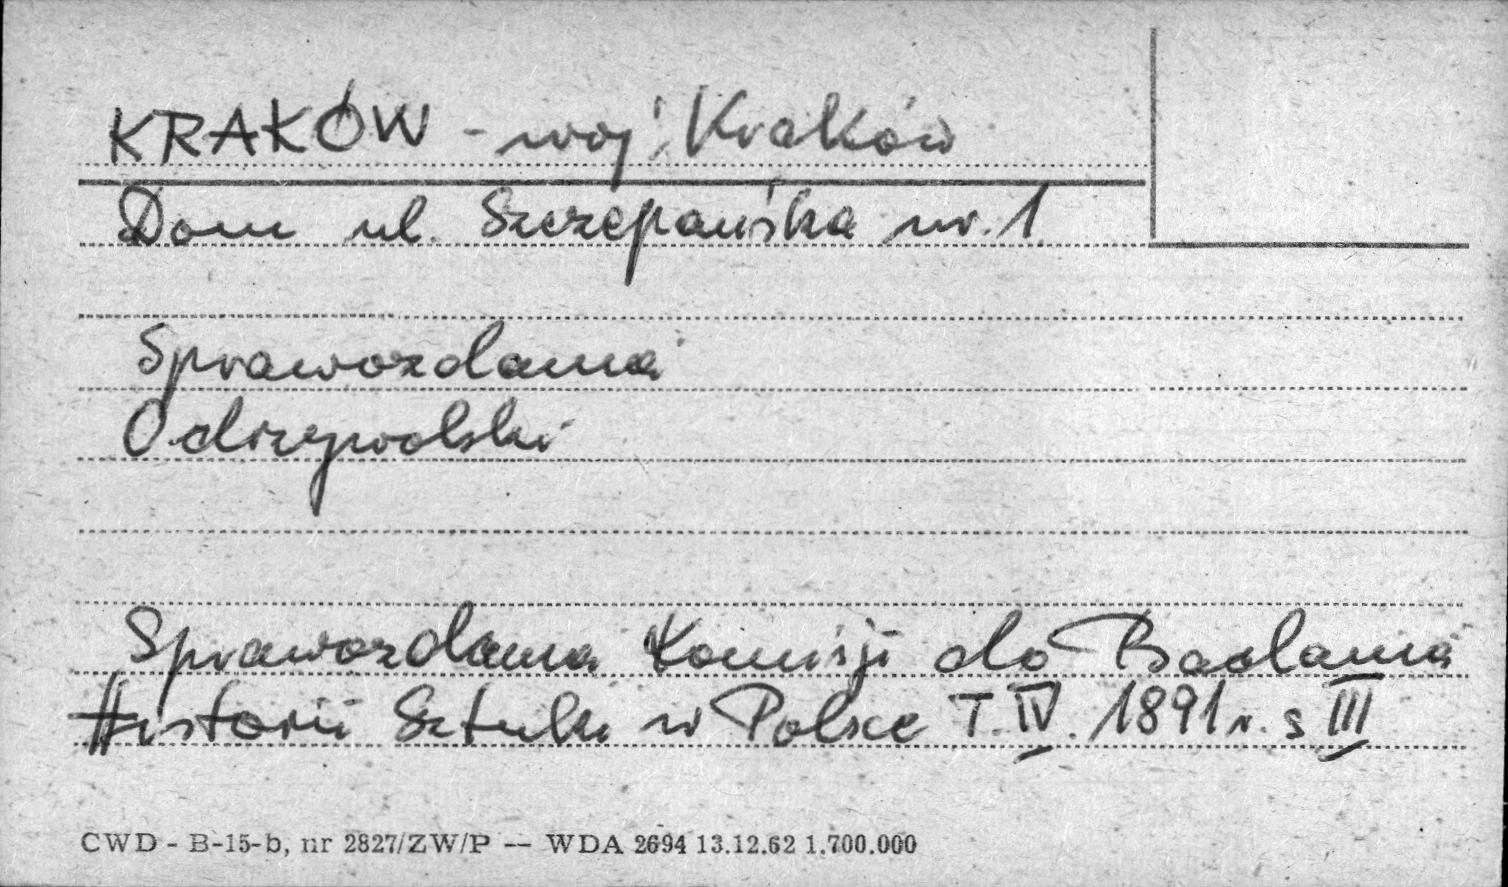 KRAKÓW - woj. Kraków
Dom ul. Szczepańska nr. 1
Sprawozdania
Odrzywolski
Sprawozdania Komisji do Badania
Historii Sztuki w Polsce T. IV. 1891 r. s III
CWD - B-15-b, nr 2827/ZW/P — WDA 2694 13.12.62 1.700.000